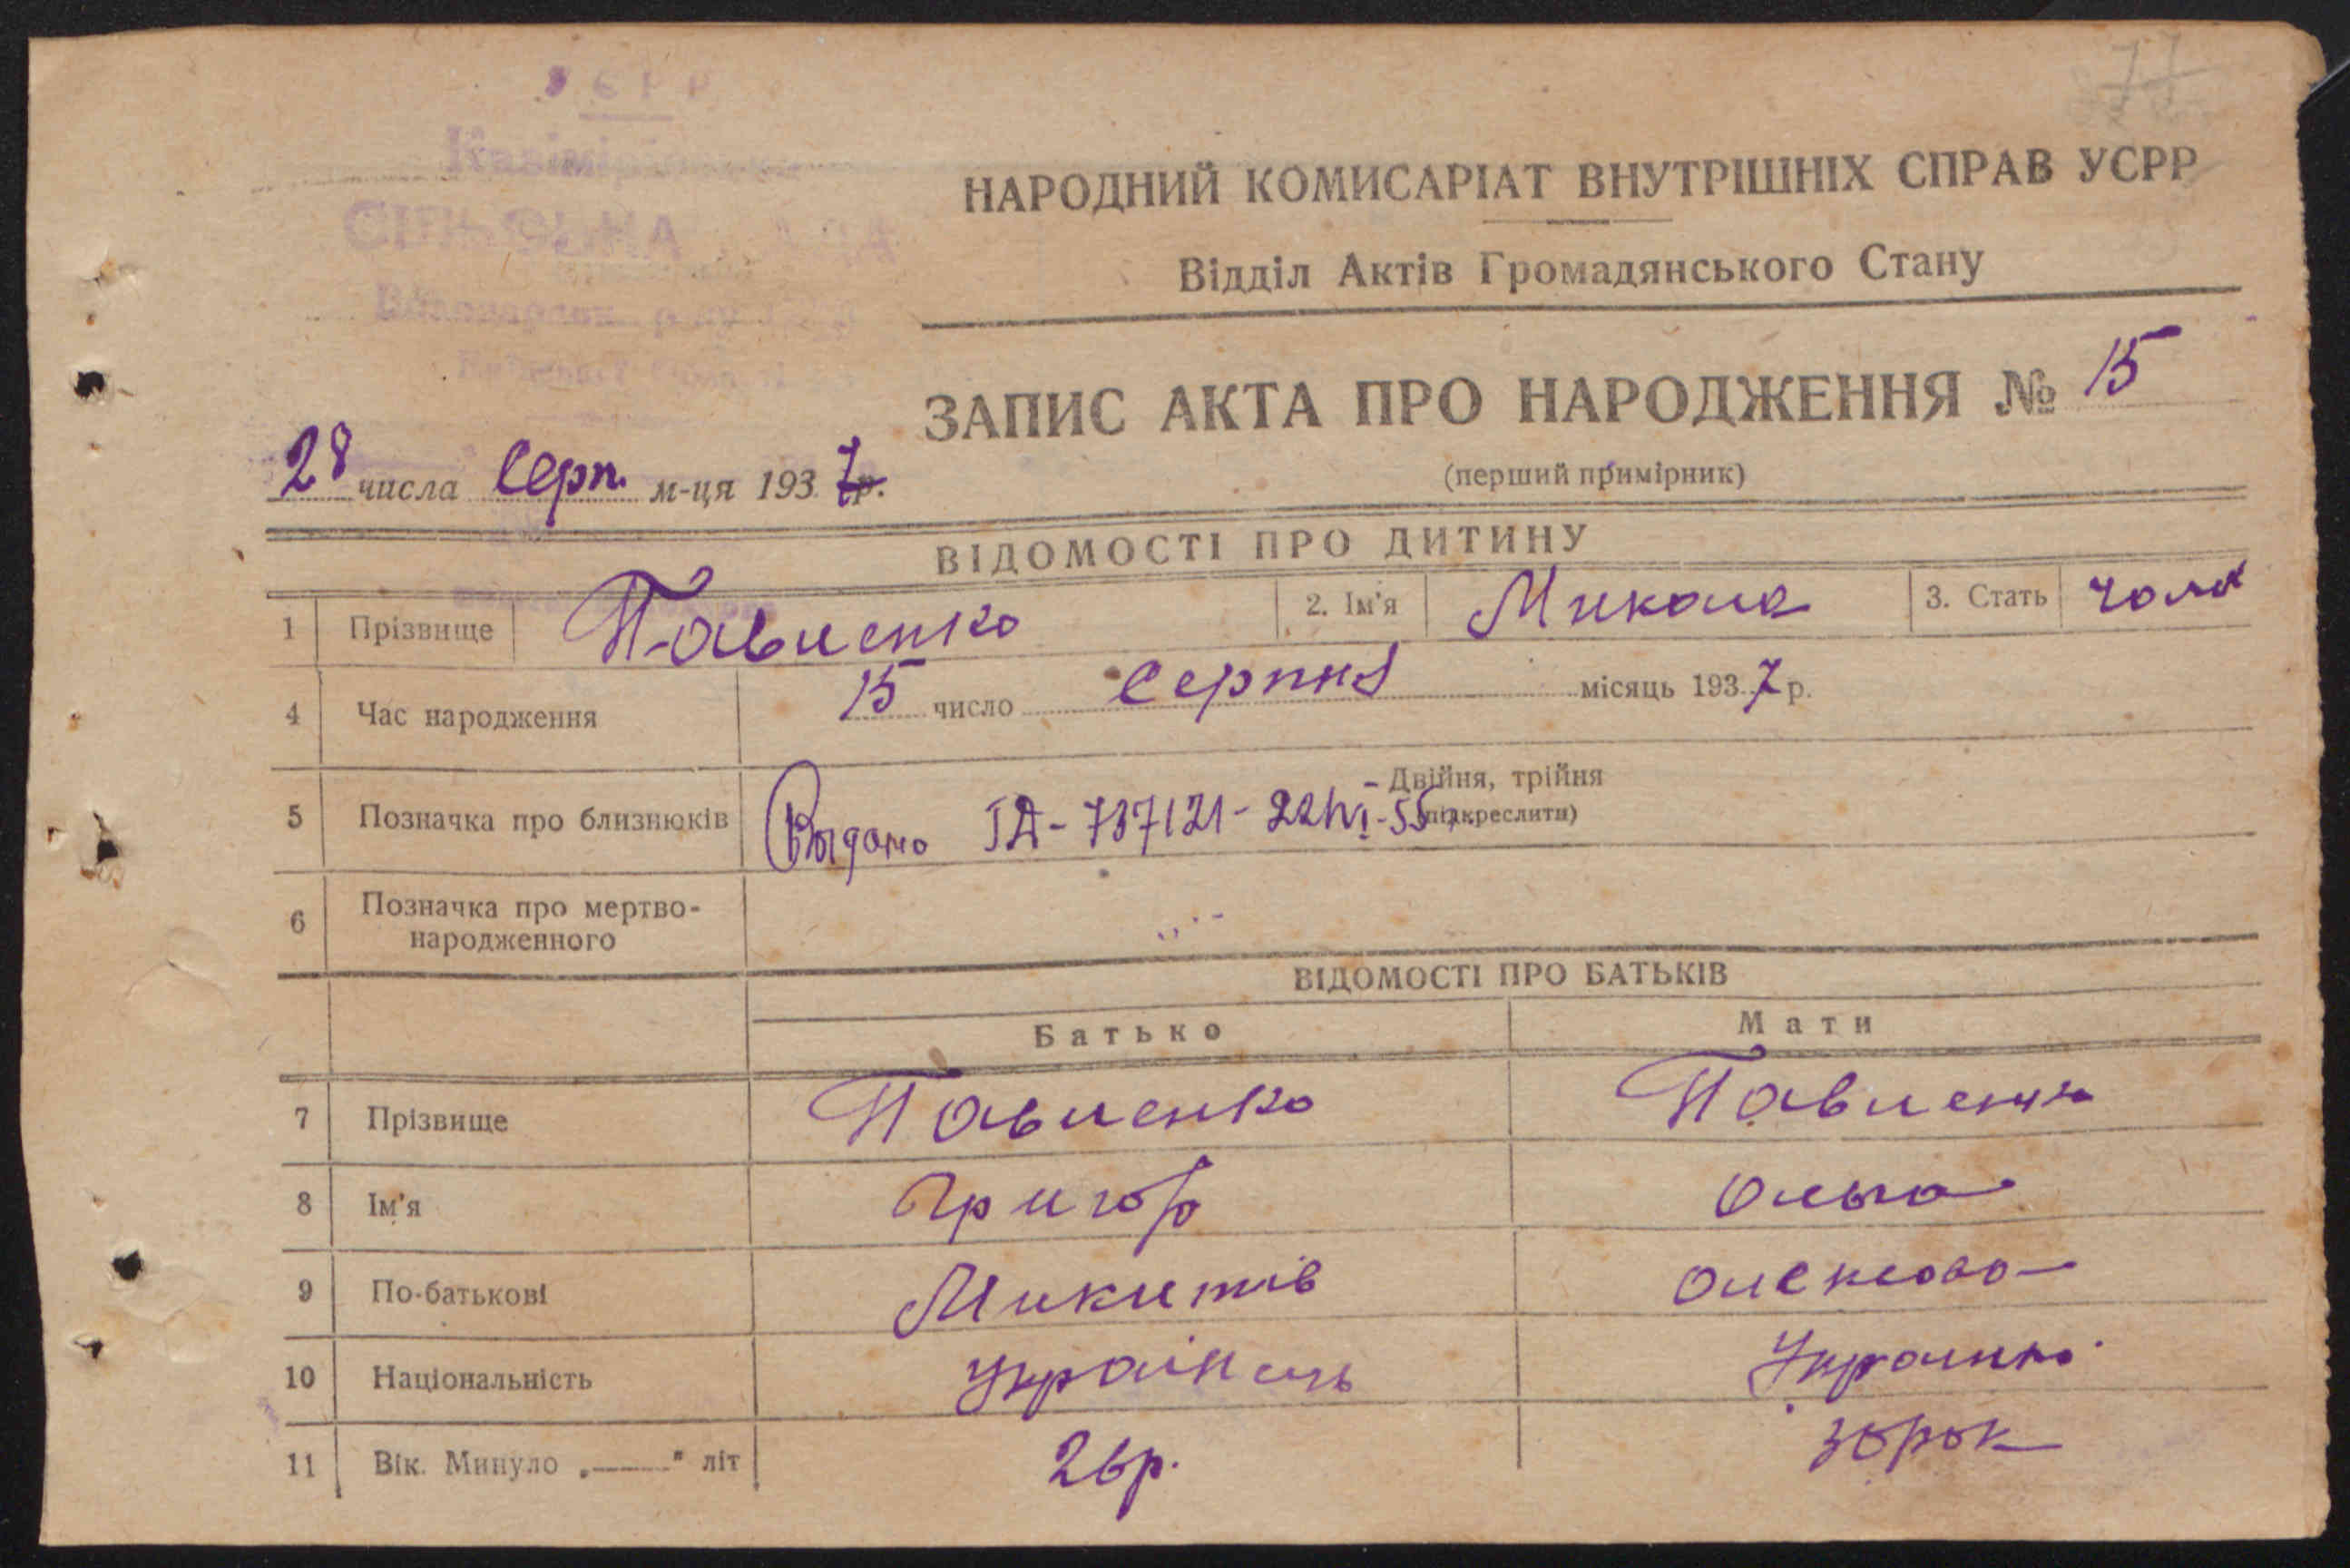 77
НАРОДНИЙ КОМИСАРІАТ ВНУТРІШНІХ СПРАВ УСРР
Відділ Актів Громадянського Стану
ЗАПИС АКТА ПРО НАРОДЖЕННЯ № 15
(перший примірник)
28 числа Серп. м-ця 1937 р.
ВІДОМОСТІ ПРО ДИТИНУ
1 Прізвище Павленко 2. Ім'я Микола 3. Стать чолов
4 Час народження 15 число серпня місяць 1937 р.
5 Позначка про близнюків Двійня, трійня
(підкреслити)
Выдано 737121
6 Позначка про мертво-
народженного
ВІДОМОСТІ ПРО БАТЬКІВ
Батько Мати
7 Прізвище Павленко Павленко
8 Ім'я Григор Ольга
9 По-батькові Микитів Олексієва
10 Національність Українець
11 Вік. Минуло „——" літ 26р.